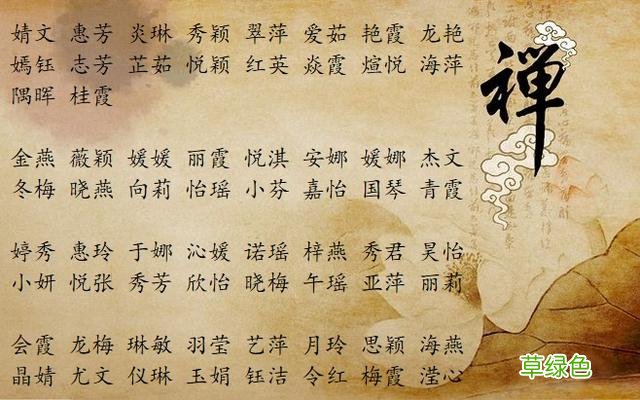 婧文 惠芳 炎琳 秀颖 翠萍 爱茹 艳霞 龙艳
嫣钰 志芳 芷茹 悦颖 红英 焱霞 煊悦 海萍
隅晖 桂霞
金燕 薇颖 媛媛 丽霞 悦淇 安娜 媛娜 杰文
冬梅 晓燕 向莉 怡瑶 小芬 嘉怡 国琴 青霞
婷秀 惠玲 于娜 沁媛 诺瑶 梓燕 秀君 昊怡
小妍 悦张 秀芳 欣怡 晓梅 午瑶 亚萍 丽莉
会霞 龙梅 琳敏 羽莹 艺萍 月玲 思颖 海燕
晶婧 尤文 仪琳 玉娟 钰洁 令红 梅霞 滢心
禅
草绿色